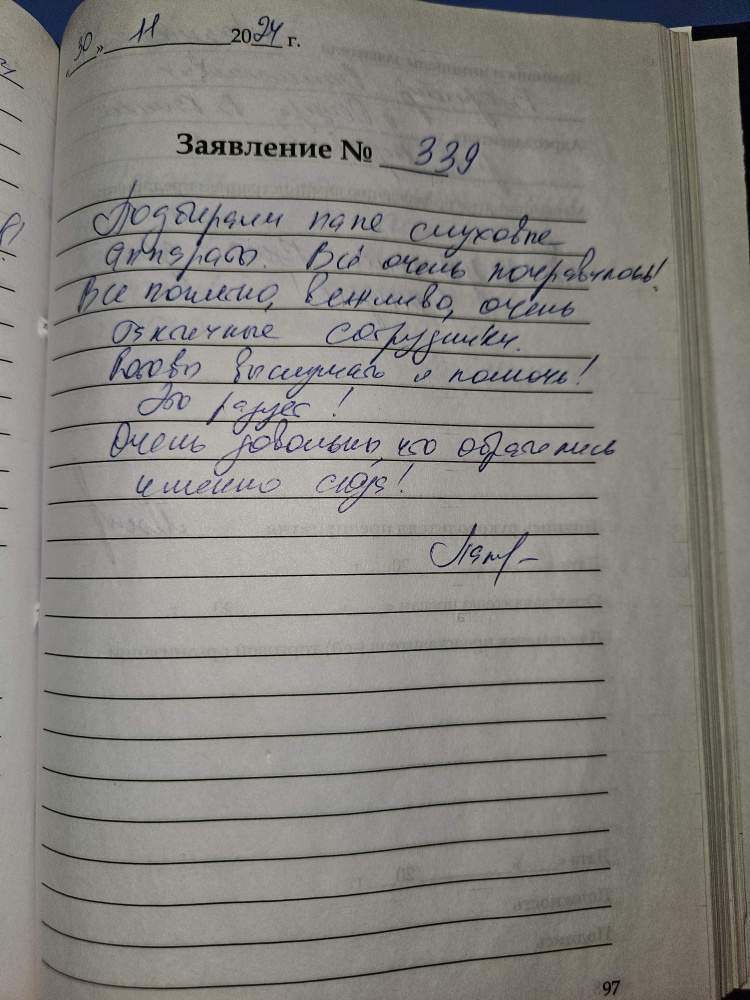 «30» 11 2024 г.
Заявление № 339
Подбирали папе слуховые
аппараты. Всё очень понравилось!
Все понятно, вежливо, очень
отзывчивые сотрудники.
Готовы выслушать и помочь!
Это радует!
Очень довольны, что обратились
именно сюда!
97